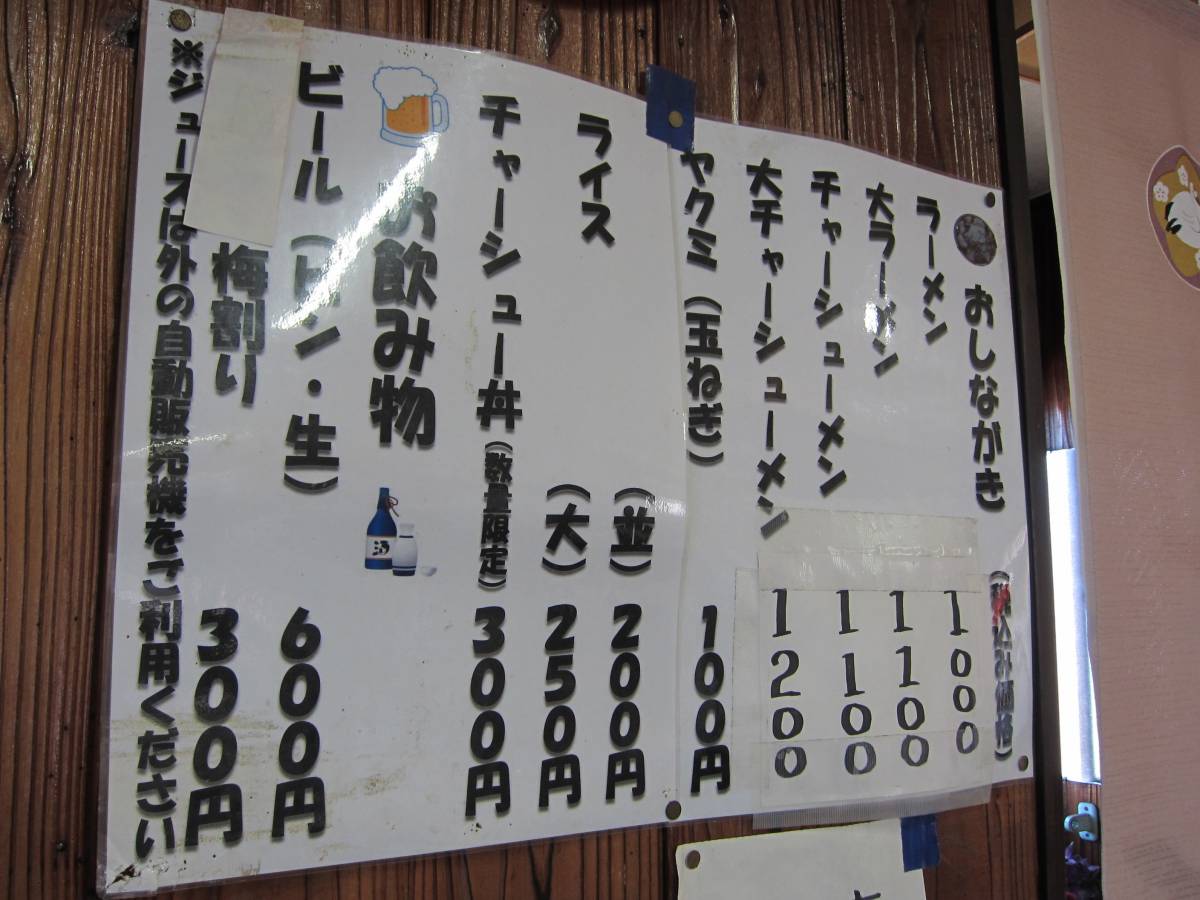 おしながき
（税込み価格）
ラーメン 1000
大ラーメン 1100
チャーシューメン 1100
大チャーシューメン 1200
ヤクミ（玉ねぎ） 100円
ライス （並） 200円
（大） 250円
チャーシュー丼（数量限定） 300円
お飲み物
酒
ビール（ビン・生） 600円
梅割り 300円
※ジュースは外の自動販売機をご利用ください